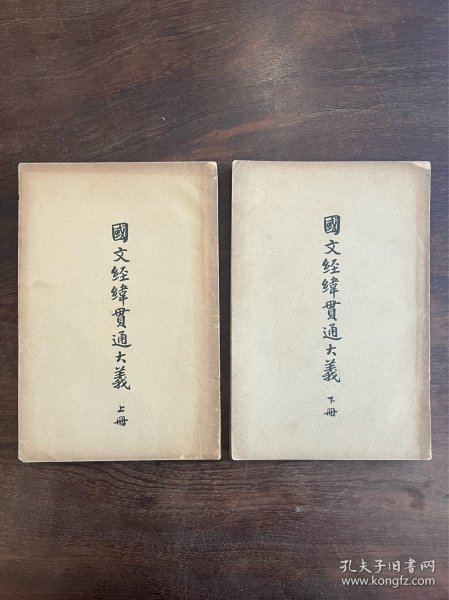 國文经緯貫通大義
上冊
國文经緯貫通大義
下冊
孔夫子旧书网
www.kongfz.com